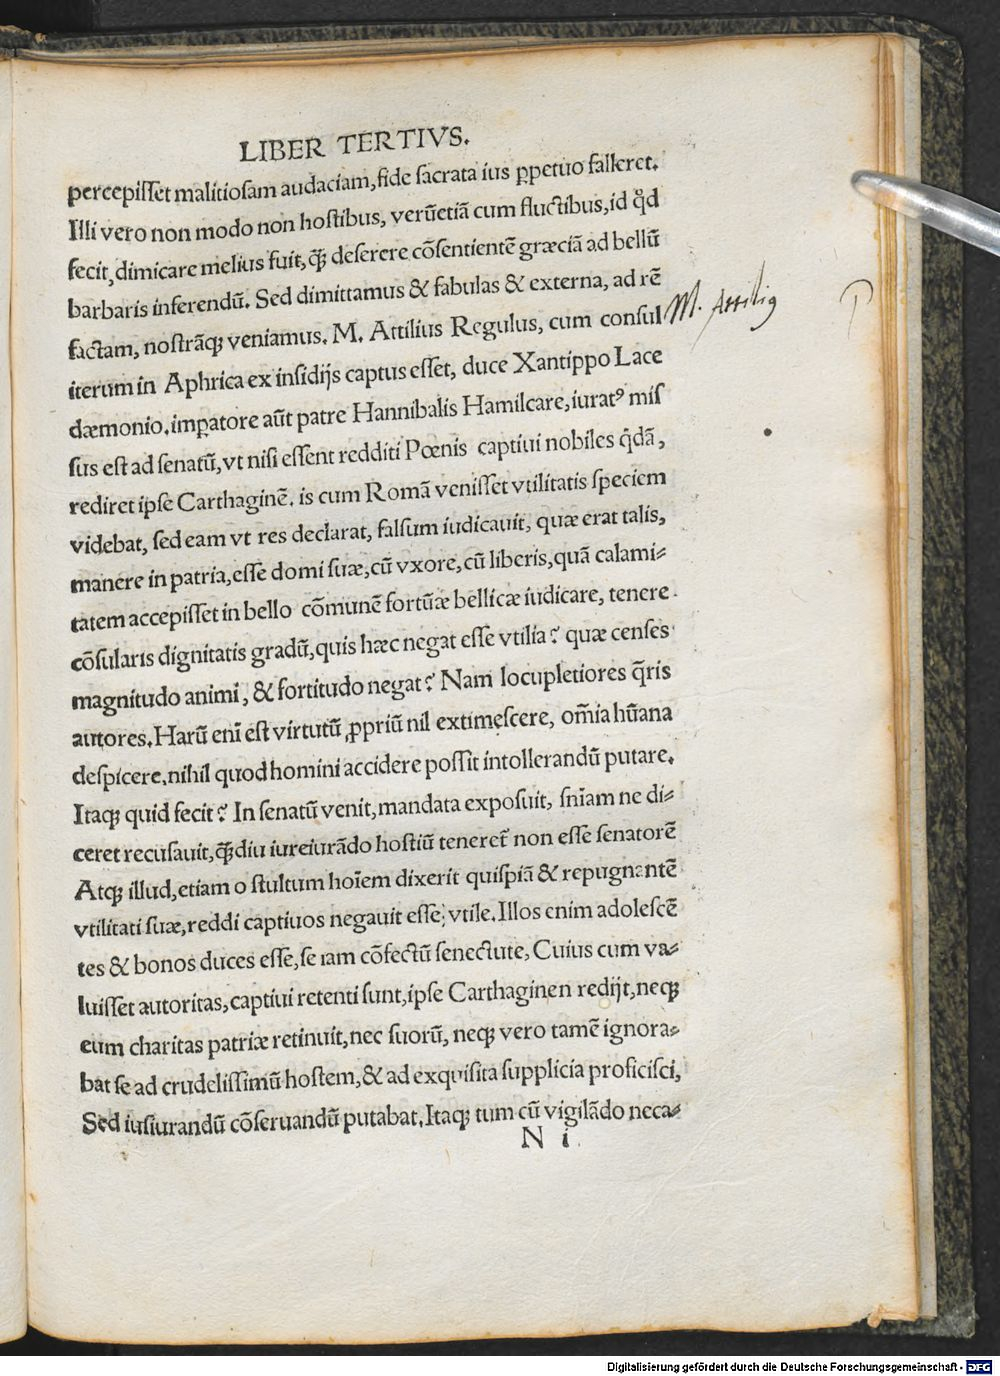 LIBER TERTIVS.
percepiſſet malitioſam audaciam, fide ſacrata ius ꝑpetuo falleret.
Illi vero non modo non hoſtibus, verūetiā cum fluctibus, id qd̉
fecit, dimicare melius fuit, q̄ꝫ deſerere cōſentientē græciā ad bellū
barbaris inferendū. Sed dimittamus & fabulas & externa, ad rē
factam, noſtrāqꝫ veniamus. M. Attilius Regulus, cum conſul
M. Attiliꝰ
P
iterum in Aphrica ex inſidijs captus eſſet, duce Xantippo Lace
dæmonio, imꝑatore aūt patre Hannibalis Hamilcare, iuratꝰ miſ
ſus eſt ad ſenatū, vt niſi eſſent redditi Pœnis captiui nobiles qͥdā,
rediret ipſe Carthaginē. is cum Romā veniſſet vtilitatis ſpeciem
videbat, ſed eam vt res declarat, falſum iudicauit, quæ erat talis,
manere in patria, eſſe domi ſuæ, cū vxore, cū liberis, quā calami⸗
tatem accepiſſet in bello cōmunē fortūæ bellicæ iudicare, tenere
cōſularis dignitatis gradū, quis hæc negat eſſe vtilia? quæ cenſes
magnitudo animi, & fortitudo negat? Nam locupletiores q̄ris
autores. Harū eni̅ eſt virtutū ꝓpriū nil extimeſcere, om̅ia hūana
deſpicere, nihil quod homini accidere poſſit intollerandū putare.
Itaqꝫ quid fecit? In ſenatū venit, mandata expoſuit, ſn̅iam ne di⸗
ceret recuſauit, q̄ꝫdiu iureiurādo hoſtiū teneret᷑ non eſſe ſenatorē
Atqꝫ illud, etiam o ſtultum hoi̅em dixerit quiſpiā & repugnantē
vtilitati ſuæ, reddi captiuos negauit eſſe, vtile. Illos enim adoleſcē
tes & bonos duces eſſe, ſe iam cōfectū ſenectute, Cuius cum va⸗
luiſſet autoritas, captiui retenti ſunt, ipſe Carthaginen redijt, neqꝫ
eum charitas patriæ retinuit, nec ſuorū, neqꝫ vero tamē ignora⸗
bat ſe ad crudeliſſimū hoſtem, & ad exquiſita ſupplicia proficiſci,
Sed iuſiurandū cōſeruandū putabat. Itaqꝫ tum cū vigilādo neca⸗
N i
Digitalisierung gefördert durch die Deutsche Forschungsgemeinschaft - DFG